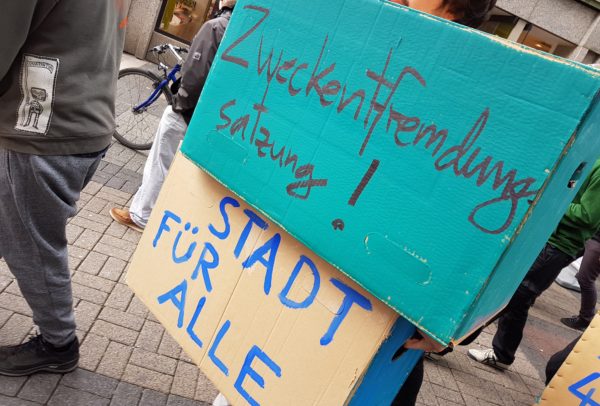 Zweckentfremdung
satzung!
STADT
FÜR
ALLE
4